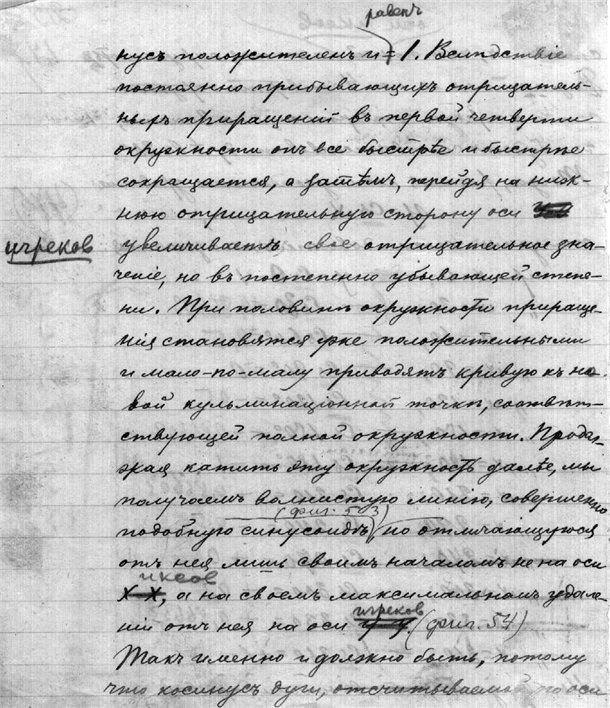 равенъ
нусъ положителенъ и = 1. Вслѣдствіе
постоянно прибывающихъ отрицатель-
ныхъ приращеній въ первой четверти
окружности онъ все быстрѣе и быстрѣе
сокращается, а затѣмъ, перейдя на ниж-
нюю отрицательную сторону оси
игреков увеличиваетъ свое отрицательное зна-
ченіе, но въ постепенно убывающей степе-
ни. При половинѣ окружности прираще-
нія становятся уже положительными
и мало-по-малу приводятъ кривую къ но-
вой кульминаціонной точкѣ, соотвѣт-
ствующей полной окружности. Продол-
жая катить эту окружность далѣе, мы
получаемъ волнистую линію, совершенно
(фиг. 53)
подобную синусоидѣ, но отличающуюся
отъ нея лишь своимъ началомъ не на оси
иксов
X X, а на своемъ максимальномъ удале-
игреков
ніи отъ нея на оси у у. (фиг. 54)
Такъ именно и должно быть, потому
что косинусъ дуги, отсчитываемой по оси